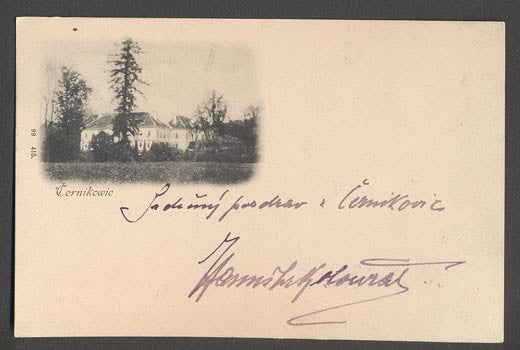 99 415.
Černikowic
Srdečný pozdrav z Černikovic
Hanuš Kolowrat